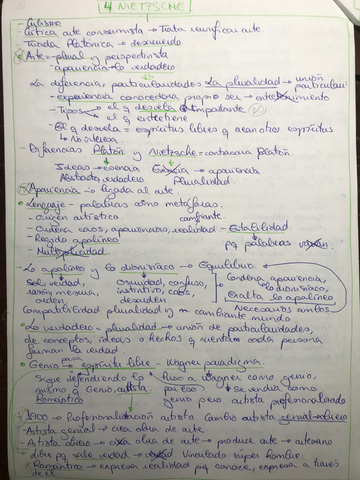 4 NIETZSCHE
- Crítica arte consumista → Trata reunificar arte.
- Tríada Platónica → desacuerdo.
Arte = plural y perspectivista
apariencia → lo verdadero
La diferencia, particularidades → la pluralidad → unión particulari
- experiencia conocedora propio ser → entretenimiento
- Tipos → el q desvela → importante
→ el q entretiene
- El q desvela = espíritus libres q crean otros espíritus
↳ No interesa.
- Diferencias Platón y Nietzsche = contracara Platón.
Ideas → esencia → apariencia
Abstracto, verdadero Pluralidad
Apariencia → ligada al arte.
Lenguaje - palabras como metáforas.
- Origen artístico cambiante.
- Ordena caos, apariencia, realidad - Estabilidad
- Regido apolíneo pq palabras
- Multiplicidad
- Lo apolíneo y lo dionisíaco → Equilibrio.
Sol, verdad, Oscuridad, confuso, Condena apariencia,
razón, mesura, instintivo, caos, lo dionisíaco,
orden. desorden Exalta lo apolíneo
Compatibilidad pluralidad y cambiante mundo Necesarios ambos
- Lo verdadero = pluralidad → unión de particularidades,
de conceptos, ideas o hechos q cada persona
forman la verdad.
Genio pasa espíritu libre - Wagner paradigma.
Sigue defendiendo lo Puso a Wagner como genio,
mismo q Genio, artista pero se vendía como
Romántico genio pero artista profesionalizado
1900 → Profesionalización artista Cambio artista genial → obrero
- Artista genial → crea obra de arte.
- Artista obrero → obra de arte → produce arte → artesano
- Libre pq sale verdad → Vinculado súper hombre.
- Romántico → expresa realidad pq conoce, expresa a través
de él